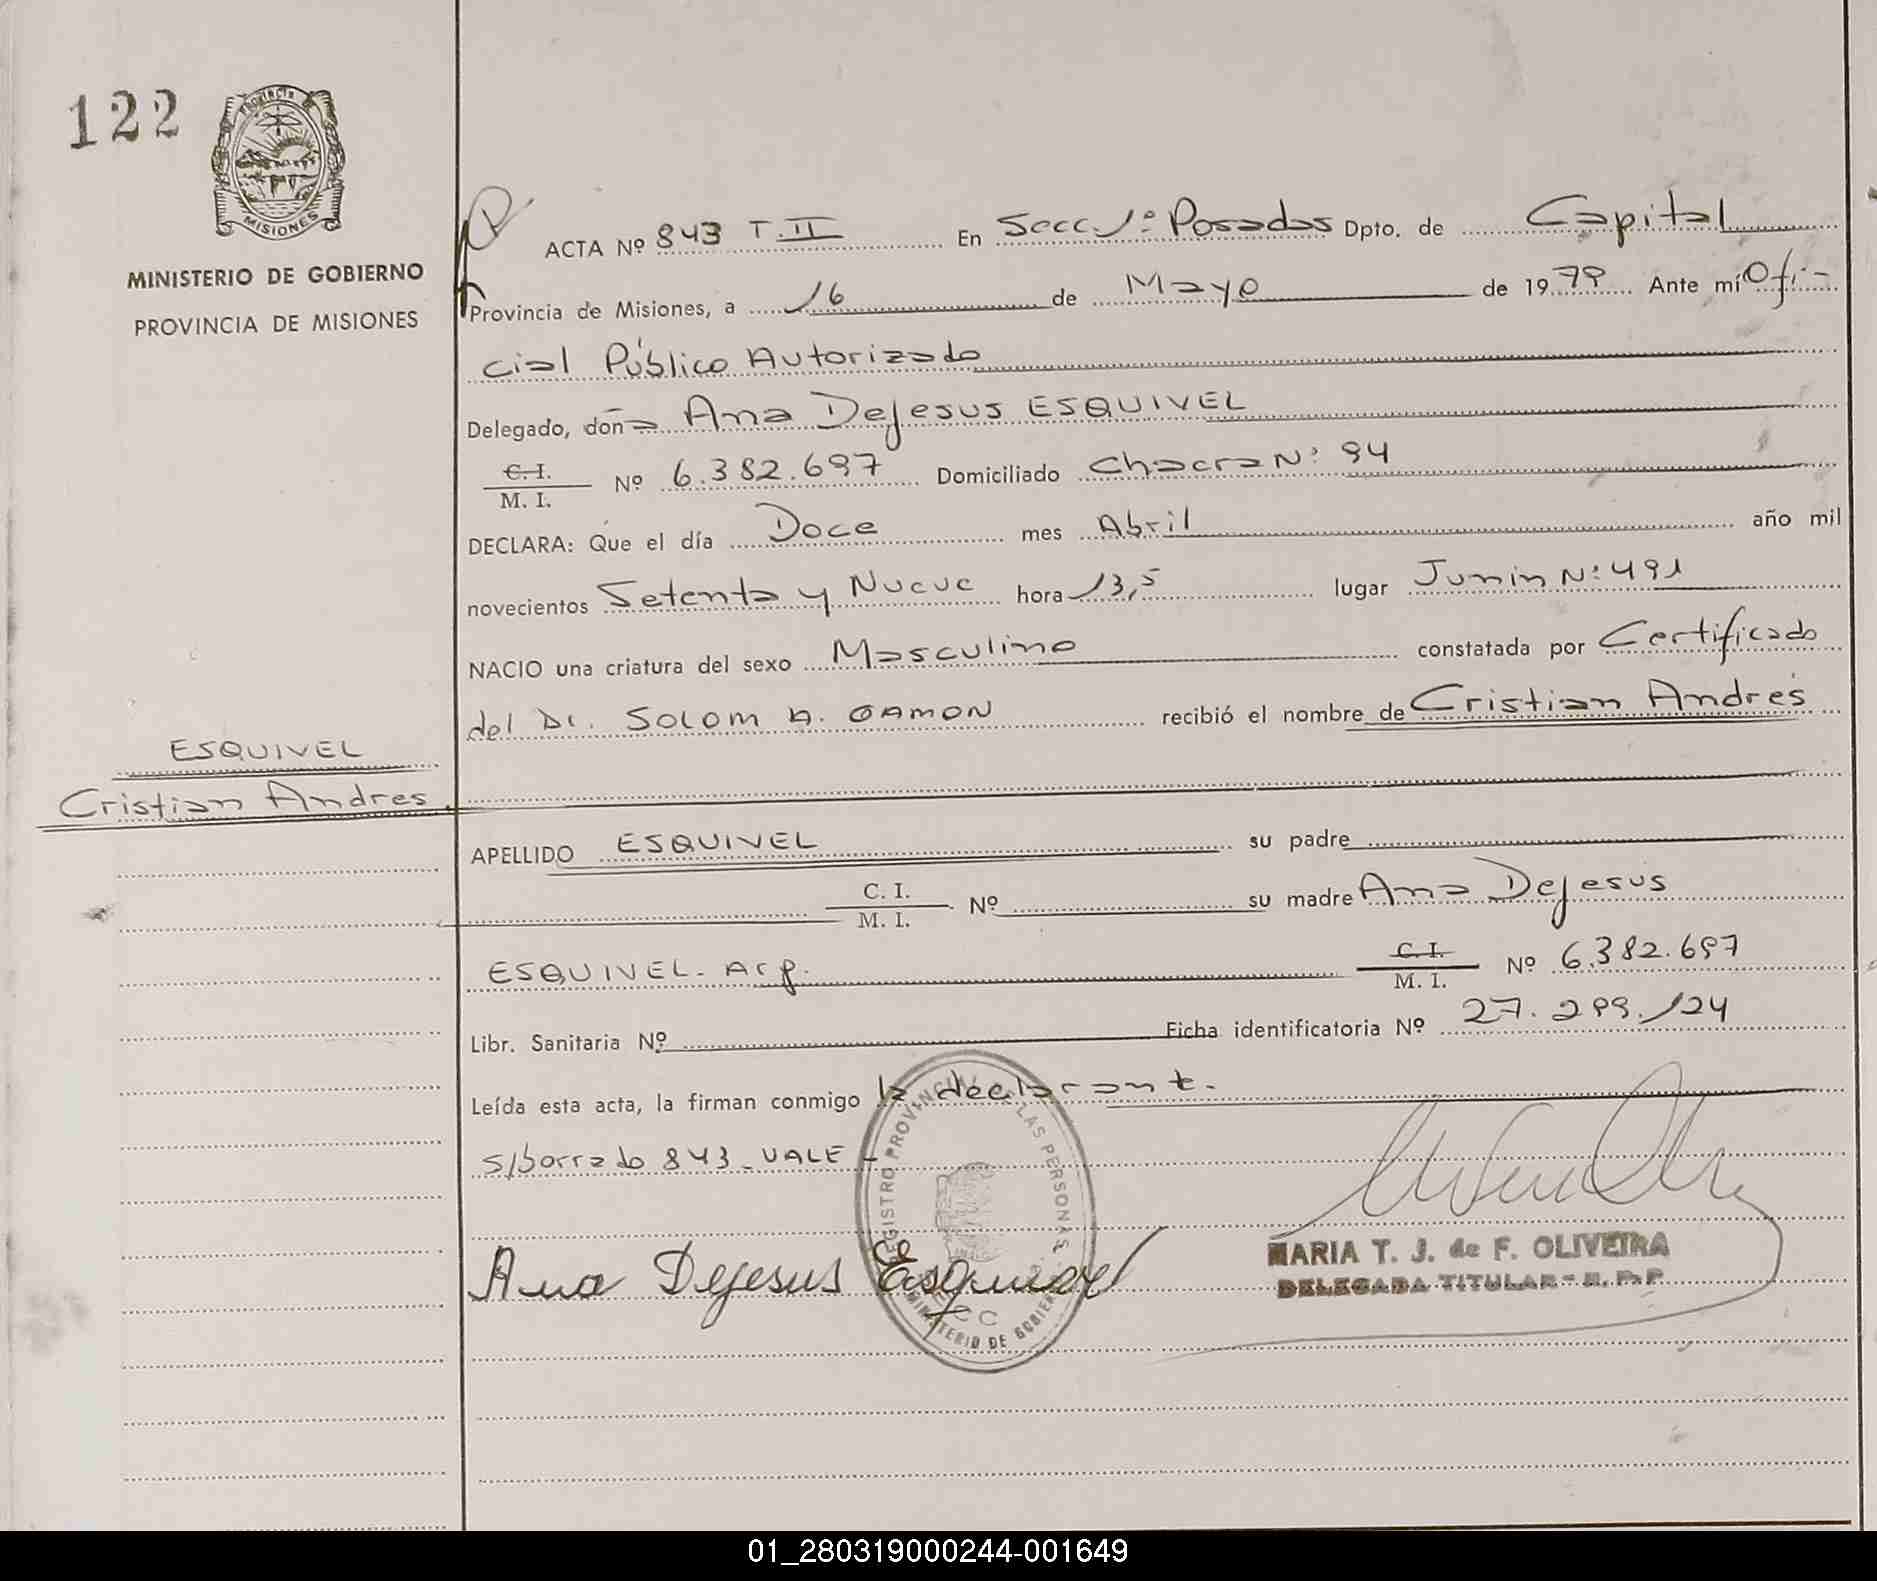 122
PROVINCIA
MISIONES
MINISTERIO DE GOBIERNO
PROVINCIA DE MISIONES
ACTA Nº 843 T. II En Secc 1º Posadas Dpto. de Capital
Provincia de Misiones, a 16 de Mayo de 1979 Ante mí Ofi-
cial Público Autorizado
Delegado, doña Ana Dejesus ESQUIVEL
C. I.
M. I. Nº 6.382.697 Domiciliado Chacra Nº 94
DECLARA: Que el día Doce mes Abril año mil
novecientos Setenta y Nueve hora 13,5 lugar Junin Nº 491
NACIO una criatura del sexo Masculino constatada por Certificado
del Dr. SOLOM A. GAMON recibió el nombre de Cristian Andrés
ESQUIVEL
Cristian Andres
APELLIDO ESQUIVEL su padre
C. I.
M. I. Nº su madre Ana Dejesus
ESQUIVEL - Arg. C. I.
M. I. Nº 6.382.697
Libr. Sanitaria Nº Ficha identificatoria Nº 27.299.124
Leída esta acta, la firman conmigo la declarant.
s/borrado 843 - VALE -
REGISTRO PROVINCIAL DE LAS PERSONAS
MINISTERIO DE GOBIERNO
Ana Dejesus Esquivel
MARIA T. J. de F. OLIVEIRA
DELEGADA TITULAR - R. P. P
01_280319000244-001649